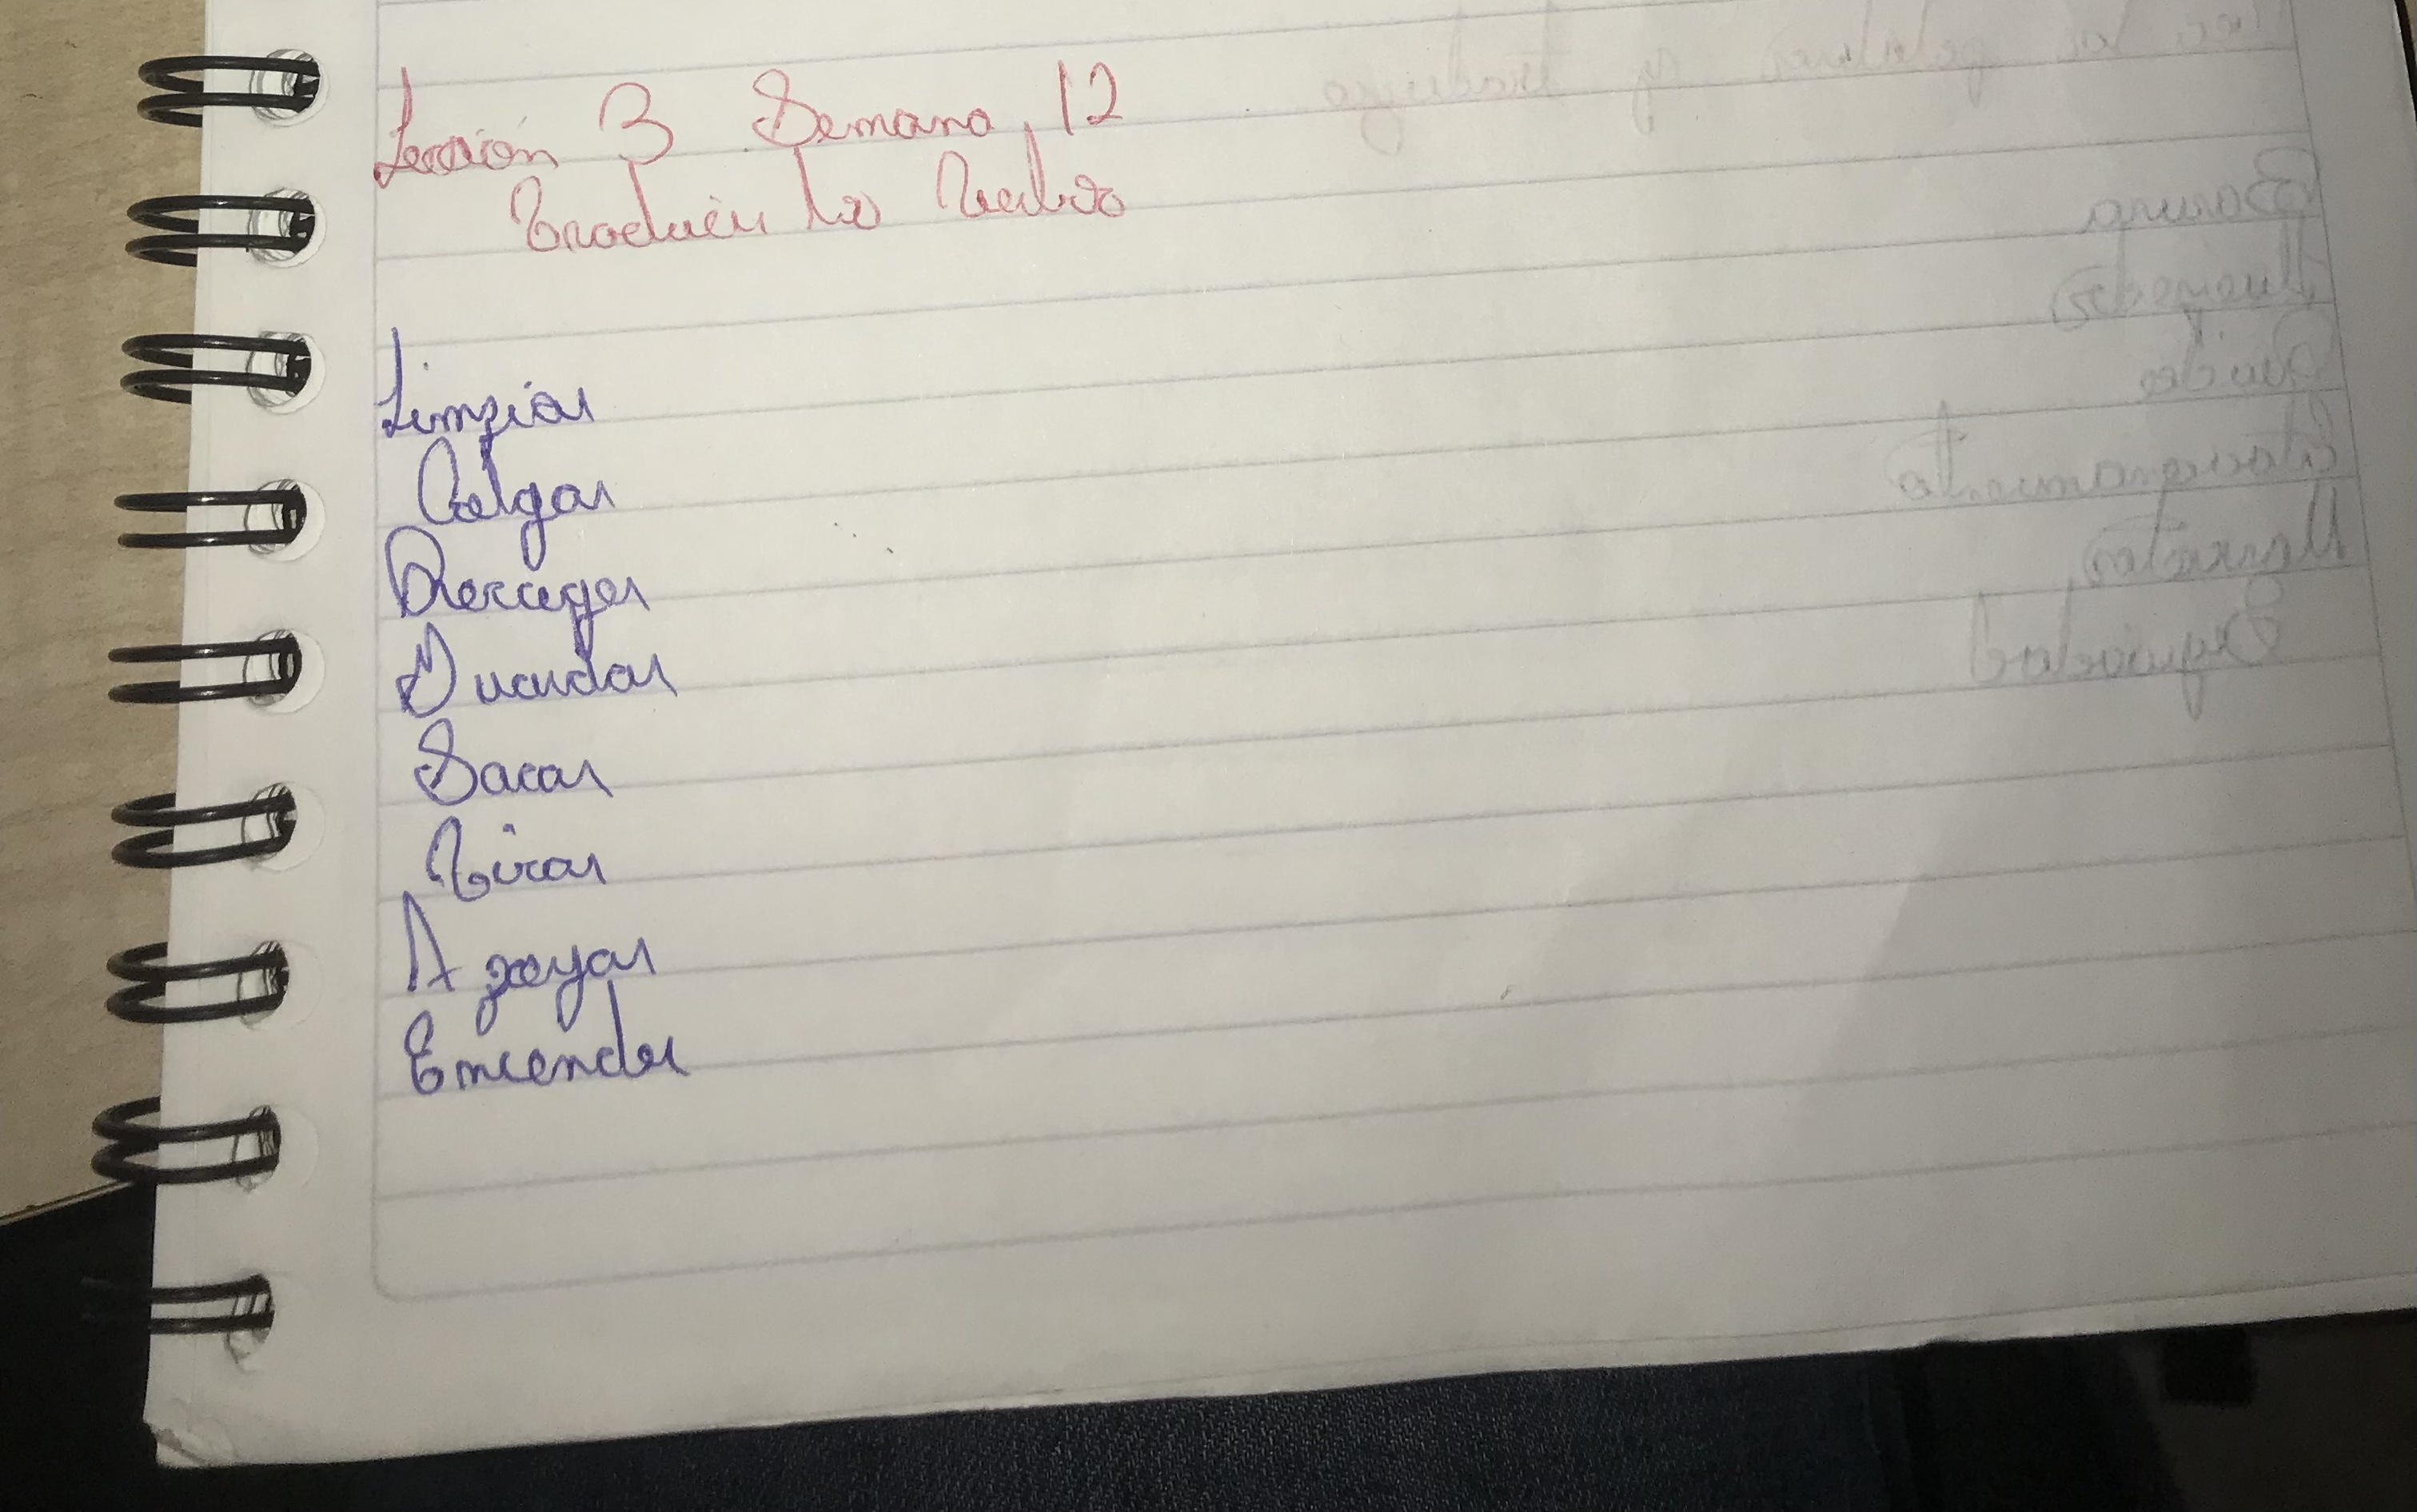 Lección 3 Semana 12
Traducir los Verbos
Limpiar
Colgar
Recoger
Guardar
Sacar
Tirar
Apoyar
Encender